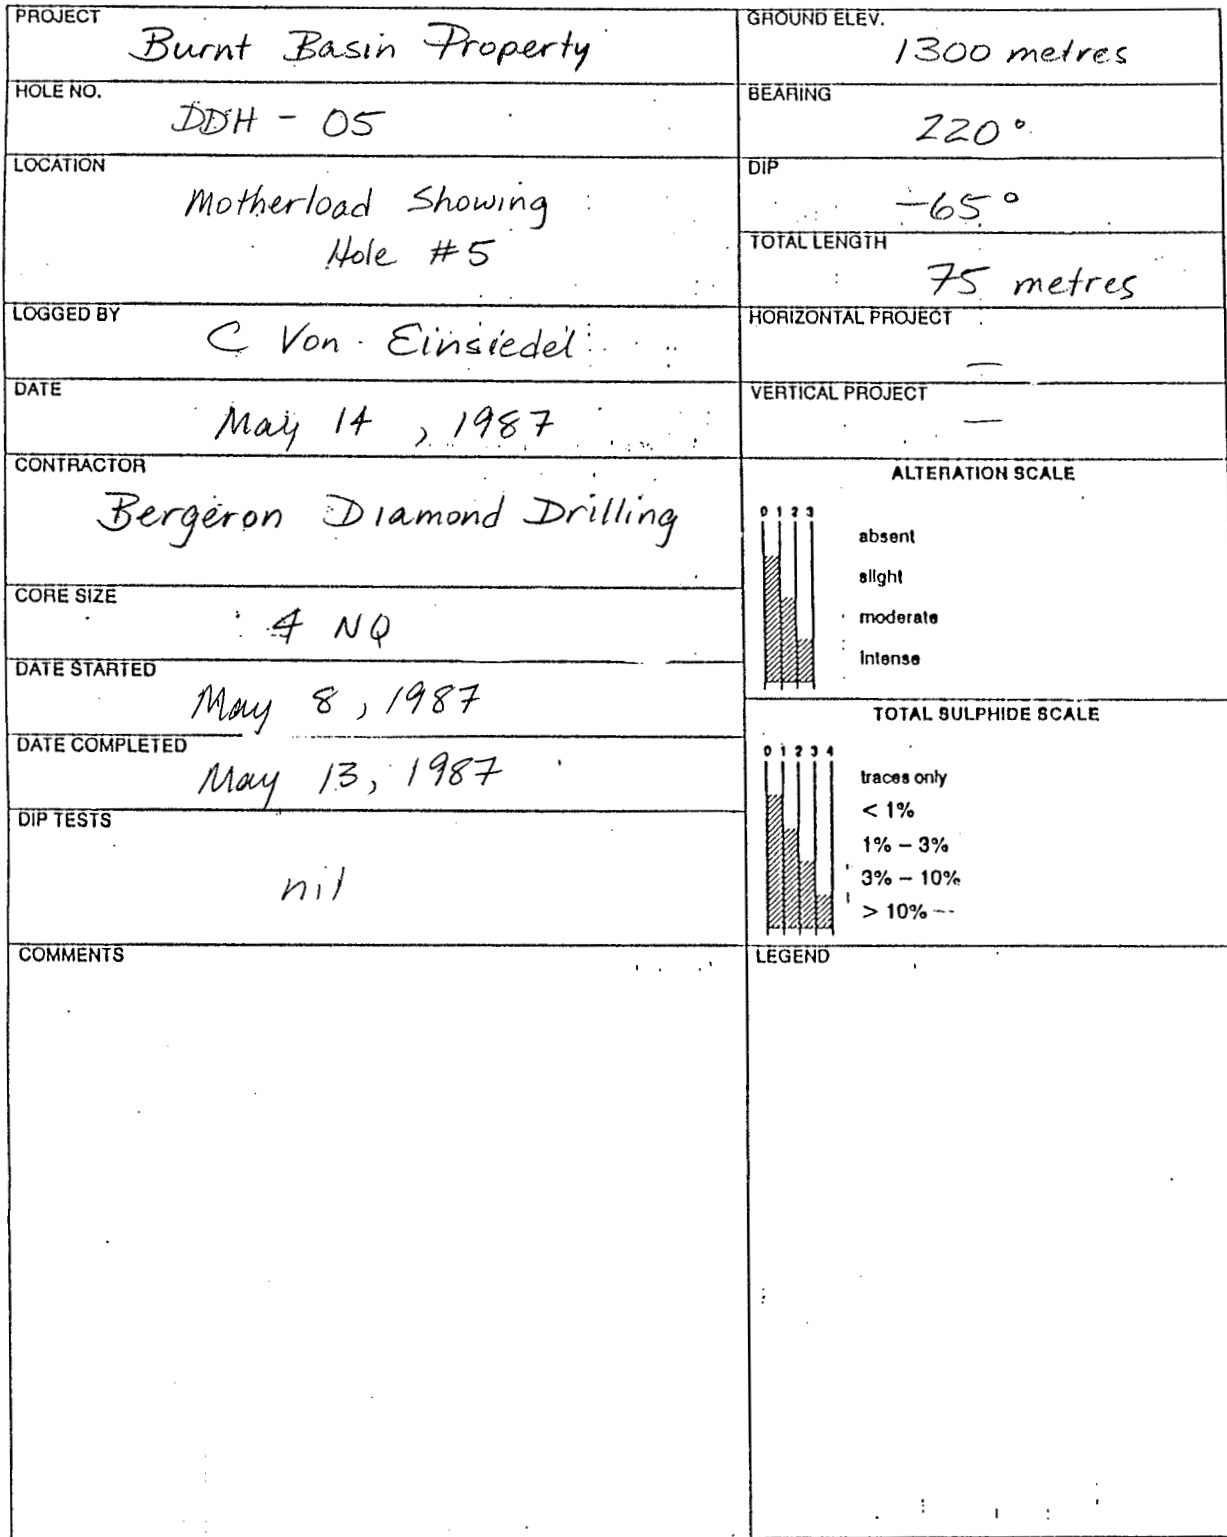 PROJECT
Burnt Basin Property
HOLE NO.
DDH - 05
LOCATION
Motherload Showing
Hole #5
LOGGED BY
C Von Einsiedel
DATE
May 14, 1987
CONTRACTOR
Bergeron Diamond Drilling
CORE SIZE
NQ
DATE STARTED
May 8, 1987
DATE COMPLETED
May 13, 1987
DIP TESTS
nil
COMMENTS
GROUND ELEV.
1300 metres
BEARING
220°
DIP
-65°
TOTAL LENGTH
75 metres
HORIZONTAL PROJECT
—
VERTICAL PROJECT
—
ALTERATION SCALE
0 1 2 3
absent
slight
moderate
intense
TOTAL SULPHIDE SCALE
0 1 2 3 4
traces only
< 1%
1% – 3%
3% – 10%
> 10%
LEGEND